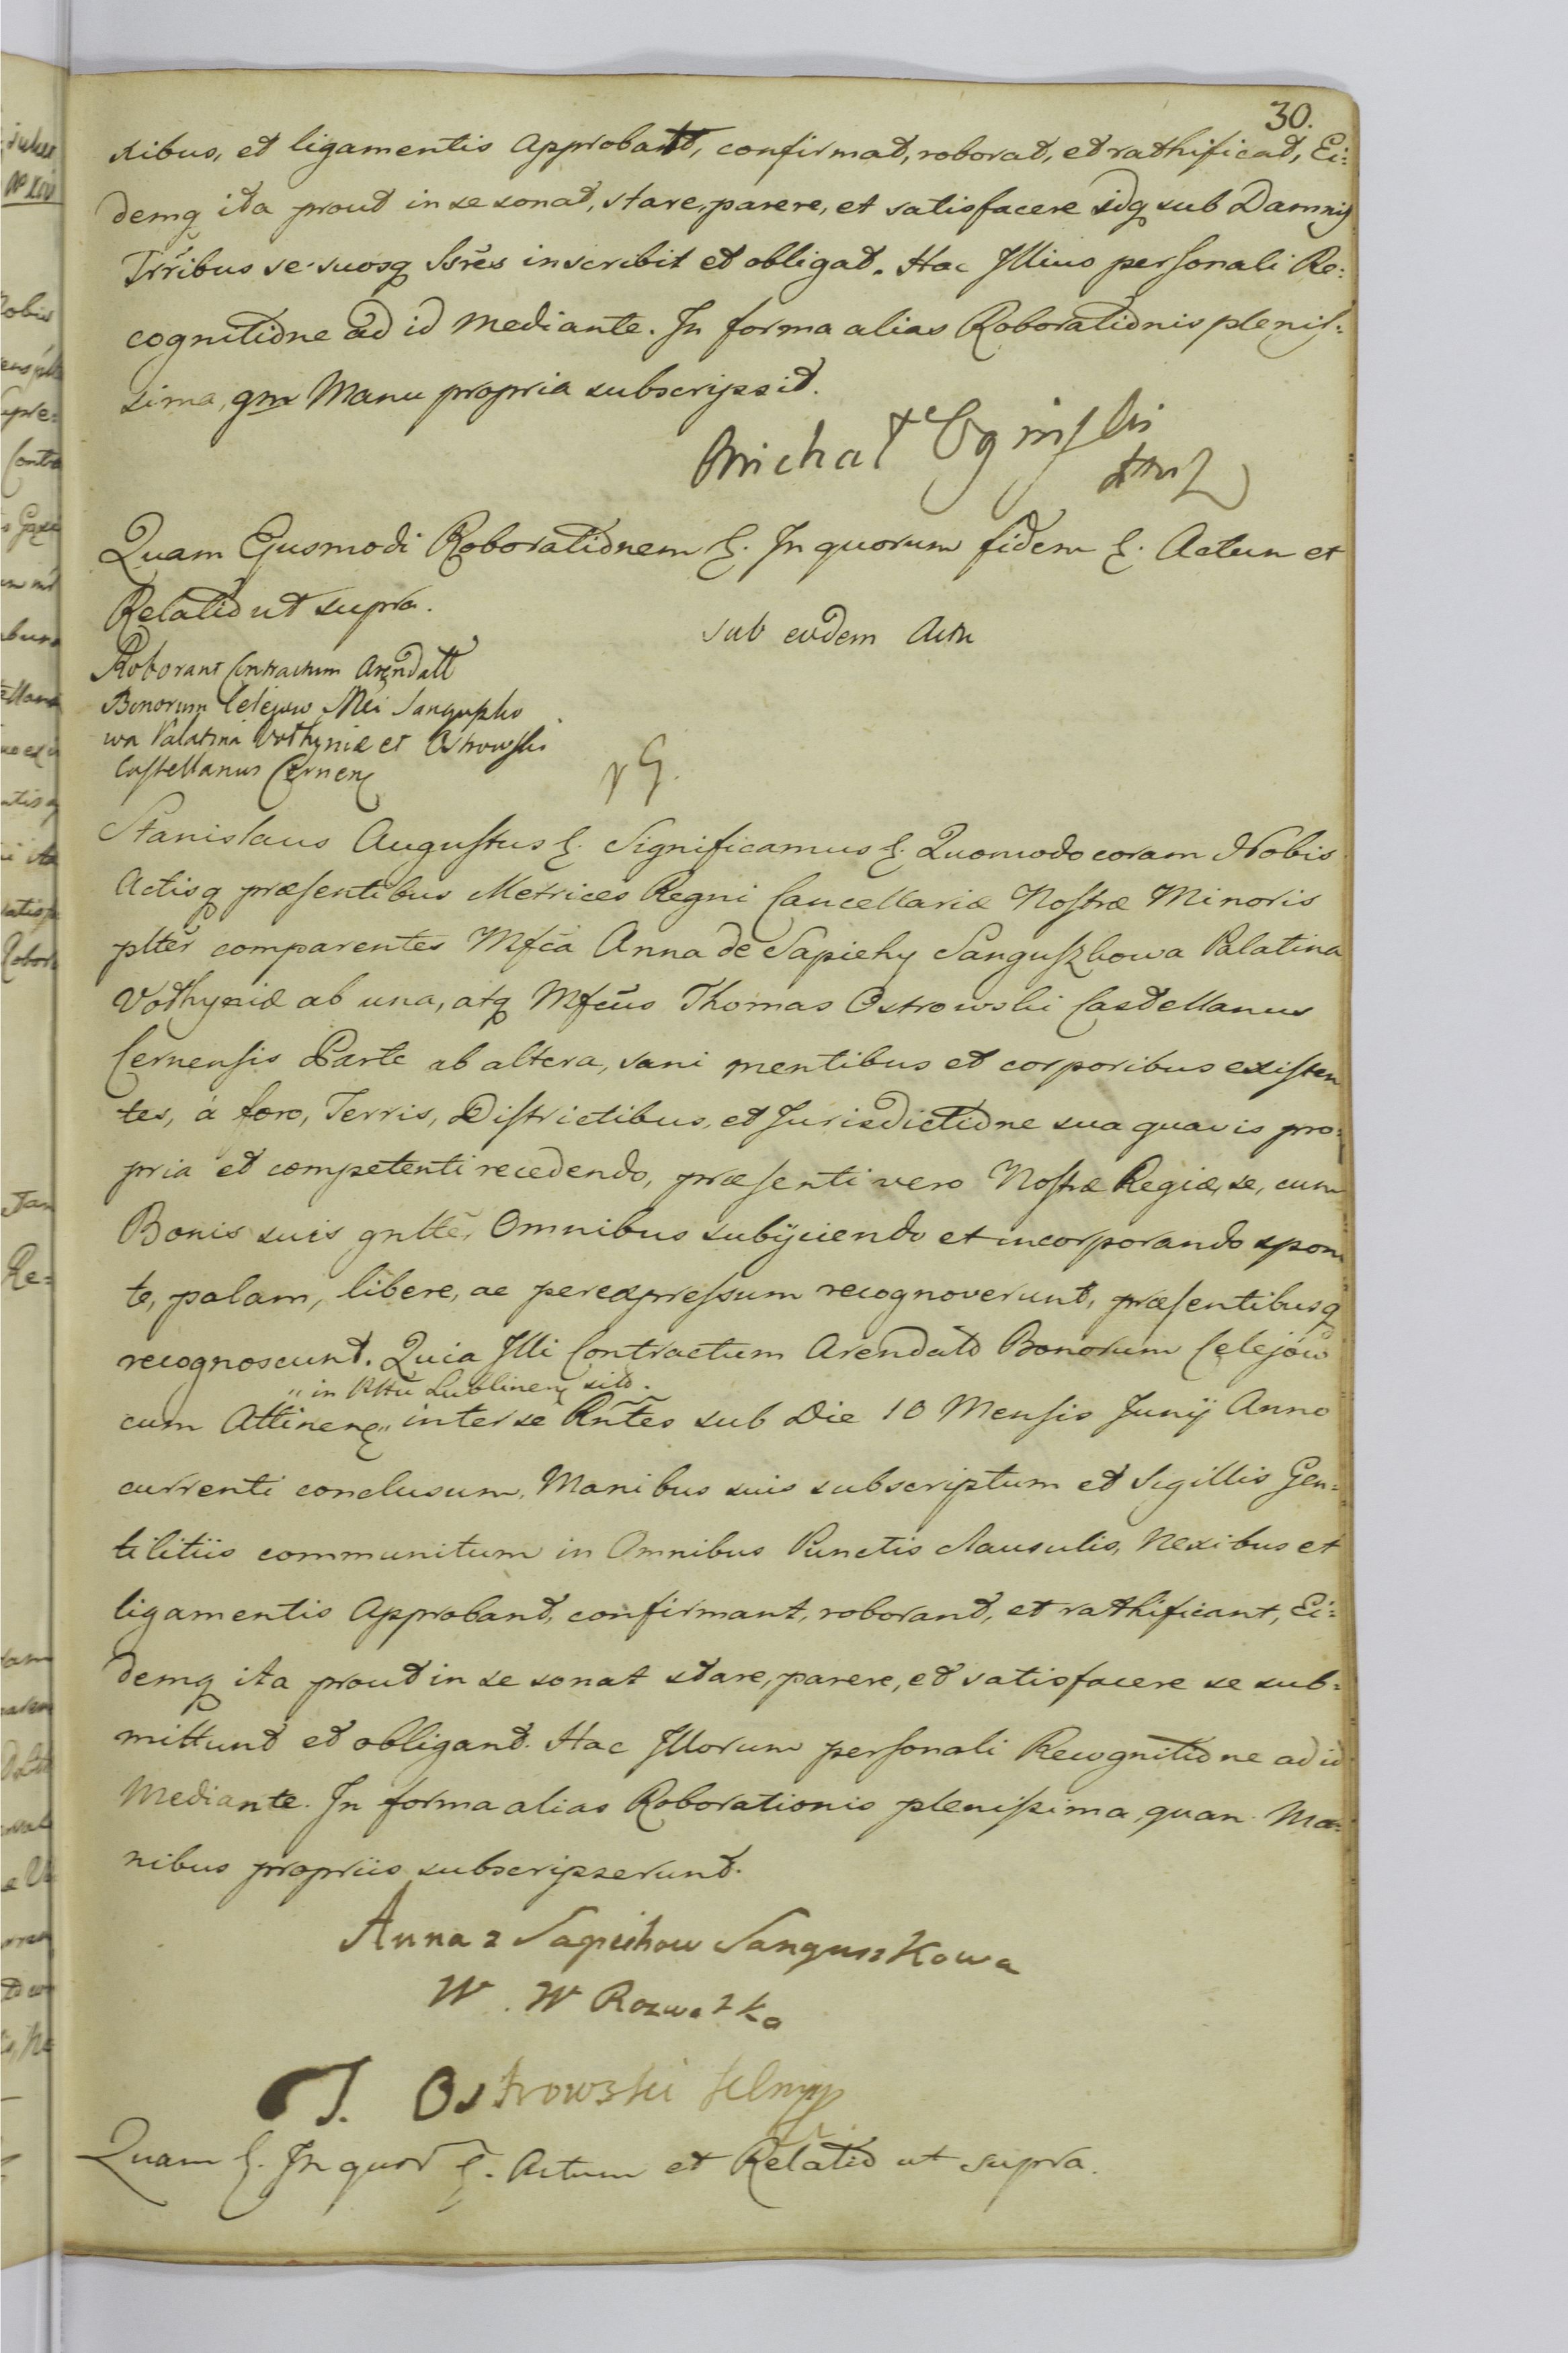 30.
xibus, et ligamentis Approbatt, confirmat, roborat, et rathificat, Ei:
demq ita prout in se sonat, stare, parere, et satisfacere idq sub Damnis
Trribus se suosq Ssres inscribit et obligat. Hac Illius personali Re:
cognitione ad id mediante. In forma alias Roborationis plenis:
sima, qm Manu propria subscripsit.
Michał Ogiński
Quam Ejusmodi Roborationem &. In quorum fidem &. Actum et
Relatio ut supra.
sub eodem Actu
Roborant Contractum Arendatt
Bonorum Celejow Mei Sanguszko
wa Palatina Volhyniæ et Ostrowski
Castellanus Cernen
Stanislaus Augustus &. Significamus &. Quomodo coram Nobis
Actisq præsentibus Metrices Regni Cancellariæ Nostræ Minoris
plter comparentes Mfca Anna de Sapiehy Sanguszkowa Palatina
Volhyniæ ab una, atq Mfcus Thomas Ostrowski Castellanus
Cernensis Parte ab altera, sani mentibus et corporibus existen
tes, á foro, Terris, Districtibus, et Jurisdictione sua quavis pro:
pria et competenti recedendo, præsenti vero Nostræ Regiæ, se, cum
Bonis suis gnlter Omnibus subijciendo et incorporando spon
te, palam, libere, ac per expressum recognoverunt, præsentibusq
recognoscunt. Quia Illi Contractum Arendato Bonorum Celejów
„ in Pttu Lublinen sito.
cum Attinen „ inter se Rntes sub Die 10 Mensis Junij Anno
currenti conclusum, Manibus suis subscriptum et Sigillis Gen:
tilitiis communitum in Omnibus Punctis clausulis, Nexibus et
ligamentis Approbant, confirmant, roborant, et rathificant, Ei:
demq ita prout in se sonat stare, parere, et satisfacere se sub:
mittunt et obligant. Hac Illorum personali Recognitione ad id
Mediante. In forma alias Roborationis plenissima, quan Ma:
nibus propriis subscripserunt.
Anna z Sapiehow Sanguszkowa
W. W
T. Ostrowski
Quam &. In quor &. Actum et Relatio ut supra.